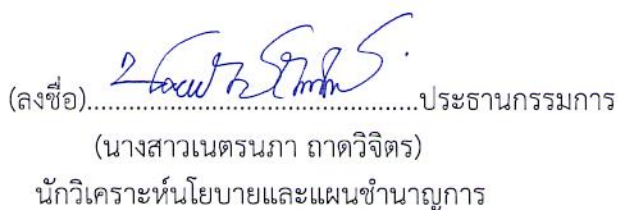 (ลงชื่อ)........................................ประธานกรรมการ
(นางสาวเนตรนภา ถาดวิจิตร)
นักวิเคราะห์นโยบายและแผนชำนาญการ